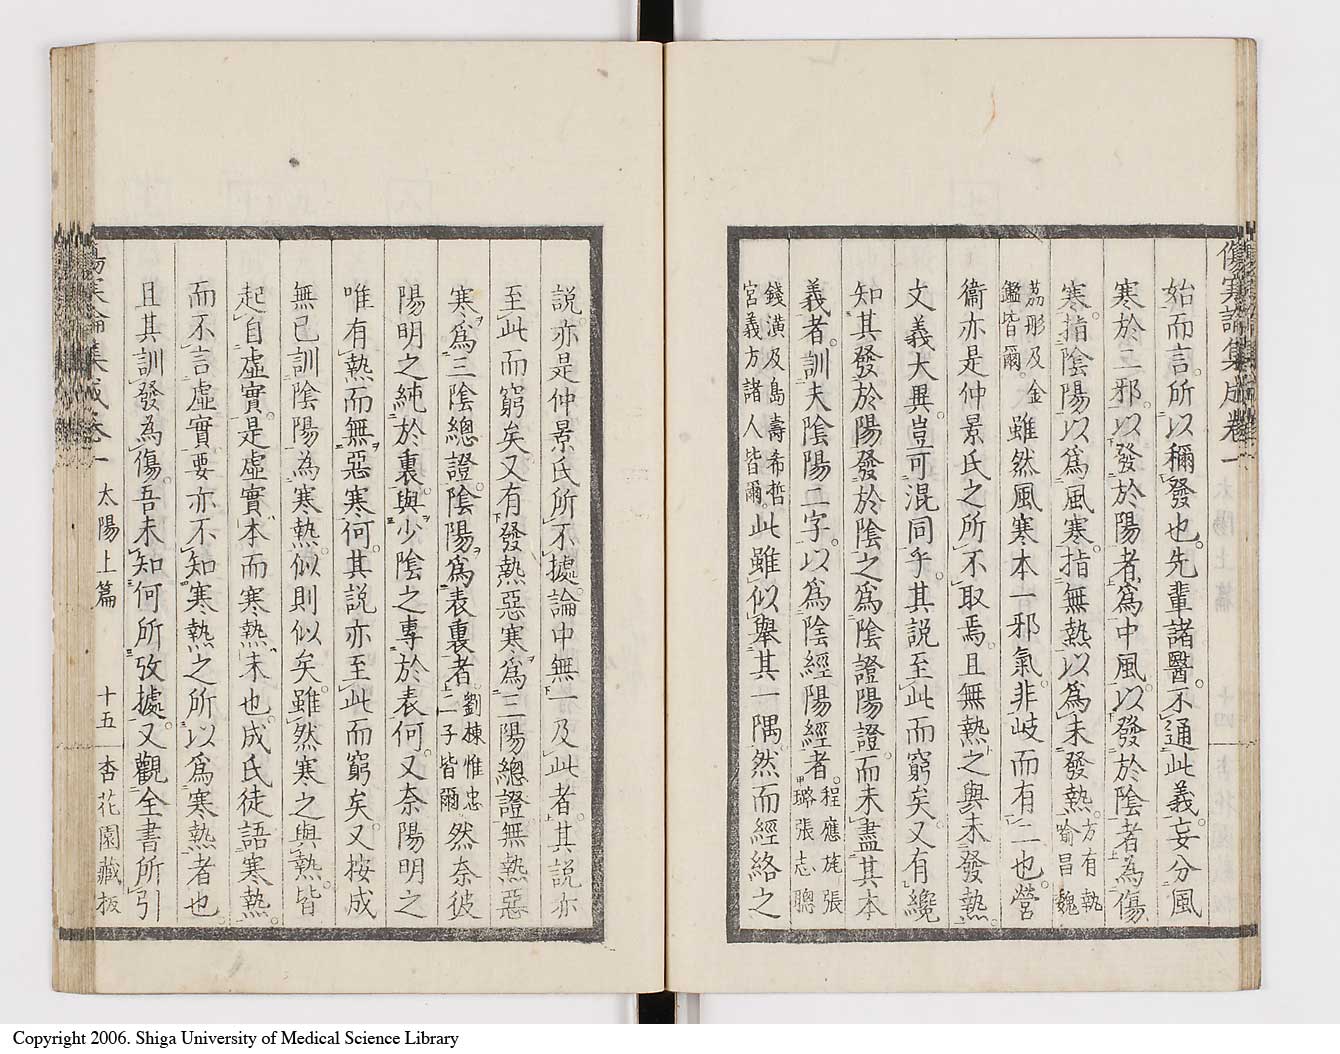 傷寒論集成卷一
始而言所以稱發也先輩諸醫不通此義妄分風
寒於二邪以發於陽者爲中風以發於陰者為傷
寒指陰陽以爲風寒指無熱以爲未發熱方有執喻昌魏
荔彤及金鑑皆爾雖然風寒本一邪氣非岐而有二也營
衞亦是仲景氏之所不取焉且無熱之與未發熱
文義大異豈可混同乎其說至此而窮矣又有纔
知其發於陽發於陰之爲陰證陽證而未盡其本
義者訓夫陰陽二字以爲陰經陽經者程應旄張璐張志聰
錢潢及島壽希哲宮義方諸人皆爾此雖似舉其一隅然而經絡之
說亦是仲景氏所不據論中無一及此者其說亦
至此而窮矣又有發熱惡寒爲三陽總證無熱惡
寒爲三陰總證陰陽爲表裏者劉棟惟忠二子皆爾然奈彼
陽明之純於裏與少陰之專於表何又奈陽明之
唯有熱而無惡寒何其說亦至此而窮矣又按成
無已訓陰陽為寒熱似則似矣雖然寒之與熱皆
起自虛實是虛實本而寒熱末也成氏徒語寒熱
而不言虛實要亦不知寒熱之所以爲寒熱者也
且其訓發為傷吾未知何所攷據又觀全書所引
傷寒論集成卷一 太陽上篇 十五 杏花園藏板
Copyright 2006. Shiga University of Medical Science Library